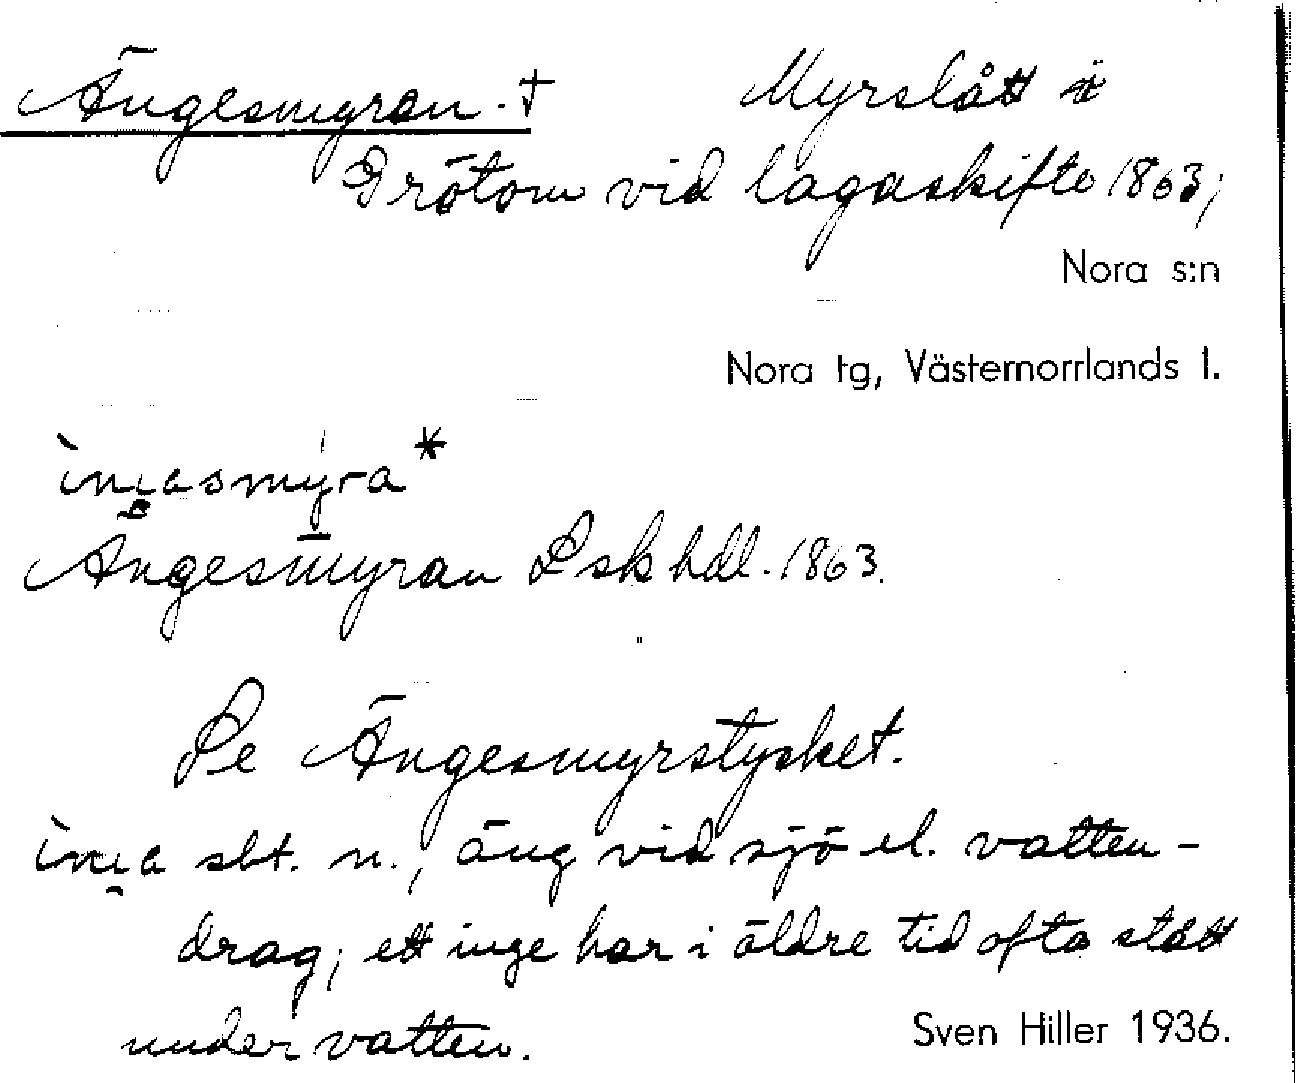 Ängesmyran. † Myrslått i
Grötom vid lagaskifte 1863;
Nora s:n
Nora tg, Västernorrlands l.
Ängesmyran Lskhdl. 1863.
Se Ängesmyrstycket.
sbt. n., äng vid sjö el. vatten-
drag; ett inge har i äldre tid ofta stått
under vatten.
Sven Hiller 1936.